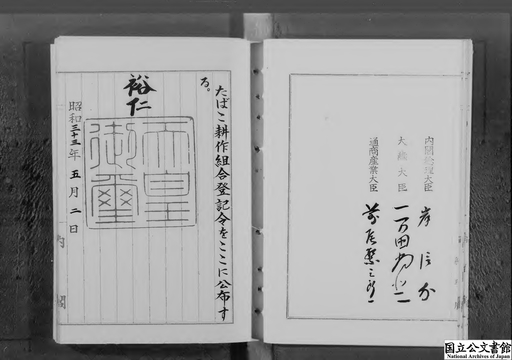 内閣総理大臣 岸信介
大蔵大臣 一万田尚登
通商産業大臣 前尾繁三郎
たばこ耕作組合登記令をここに公布す
る。
裕仁
天皇御璽
昭和三十三年五月二日
内閣
国立公文書館
National Archives of Japan